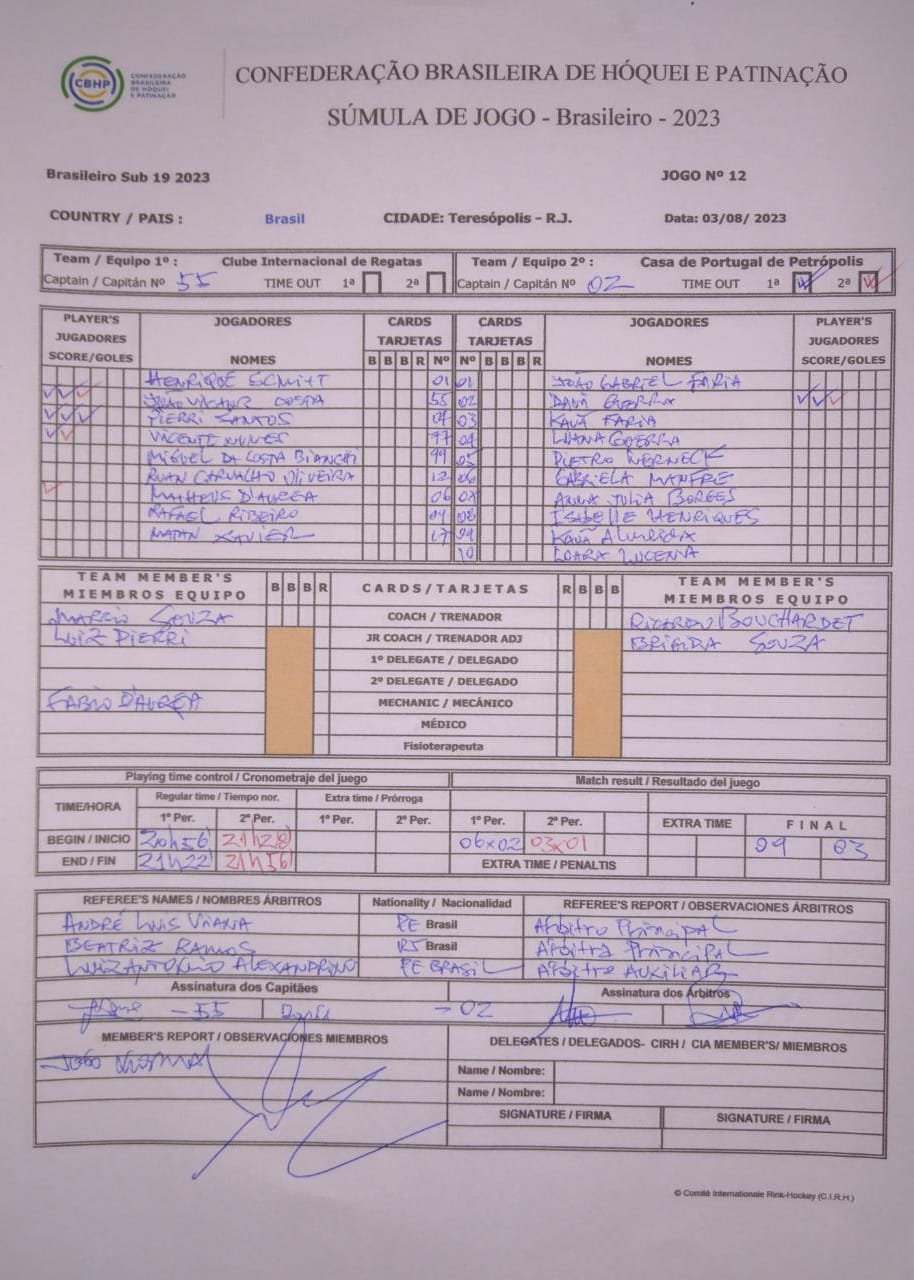 CBHP CONFEDERAÇÃO BRASILEIRA DE HÓQUEI E PATINAÇÃO
CONFEDERAÇÃO BRASILEIRA DE HÓQUEI E PATINAÇÃO
SÚMULA DE JOGO - Brasileiro - 2023
Brasileiro Sub 19 2023 JOGO Nº 12
COUNTRY / PAIS : Brasil CIDADE: Teresópolis - R.J. Data: 03/08/ 2023
Team / Equipo 1º : Clube Internacional de Regatas Team / Equipo 2º : Casa de Portugal de Petrópolis
Captain / Capitán Nº 55 TIME OUT 1ª 2ª Captain / Capitán Nº 02 TIME OUT 1ª 2ª
PLAYER'S JOGADORES CARDS CARDS JOGADORES PLAYER'S
JUGADORES TARJETAS TARJETAS JUGADORES
SCORE/GOLES NOMES B B B R Nº Nº B B B R NOMES SCORE/GOLES
HENRIQUE SCMITT 01 01 JOÃO GABRIEL FARIA
JOÃO VICTOR COSTA 55 02 DAVI GUERRA
PIERRI SANTOS 07 03 KAUÃ FARIA
VICENTE NUNES 77 04 LUANA GUERRA
MIGUEL DA COSTA BIANCHI 99 05 PIETRO WERNECK
RUAN CARVALHO OLIVEIRA 12 06 GABRIELA MANFRE
MATHEUS D'AUREA 06 07 ANNA JULIA BORGES
RAFAEL RIBEIRO 08 ISABELLE HENRIQUES
XAVIER 17 99 KAUÃ Almeida
10 LOARA LUCENA
TEAM MEMBER'S B B B R CARDS/TARJETAS R B B B TEAM MEMBER'S
MIEMBROS EQUIPO MIEMBROS EQUIPO
MARCIO SOUZA COACH / TRENADOR RICARDO BOUCHARDET
LUIZ PIERRI JR COACH / TRENADOR ADJ BRIGIDA SOUZA
1º DELEGATE / DELEGADO
2º DELEGATE / DELEGADO
FABIO D'AUREA MECHANIC / MECÁNICO
MÉDICO
Fisioterapeuta
Playing time control / Cronometraje del juego Match result / Resultado del juego
TIME/HORA Regular time / Tiempo nor. Extra time / Prórroga
1º Per. 2º Per. 1º Per. 2º Per. 1º Per. 2º Per. EXTRA TIME F I N A L
BEGIN / INICIO 20h56 21h28 06x02 03x01 09 03
END / FIN 21h22 21h56 EXTRA TIME / PENALTIS
REFEREE'S NAMES / NOMBRES ÁRBITROS Nationality / Nacionalidad REFEREE'S REPORT / OBSERVACIONES ÁRBITROS
ANDRÉ LUIS VIANA PE Brasil Árbitro Principal
BEATRIZ RAMOS Brasil Árbitra Principal
LUIZ ANTONIO ALEXANDRINO PE BRASIL Árbitro AUXILIAR
Assinatura dos Capitães Assinatura dos Árbitros
- 55 - 02
MEMBER'S REPORT / OBSERVACIONES MIEMBROS DELEGATES / DELEGADOS- CIRH / CIA MEMBER'S/ MIEMBROS
JOÃO
Name / Nombre:
Name / Nombre:
SIGNATURE / FIRMA SIGNATURE / FIRMA
© Comité Internationale Rink-Hockey (C.I.R.H.)